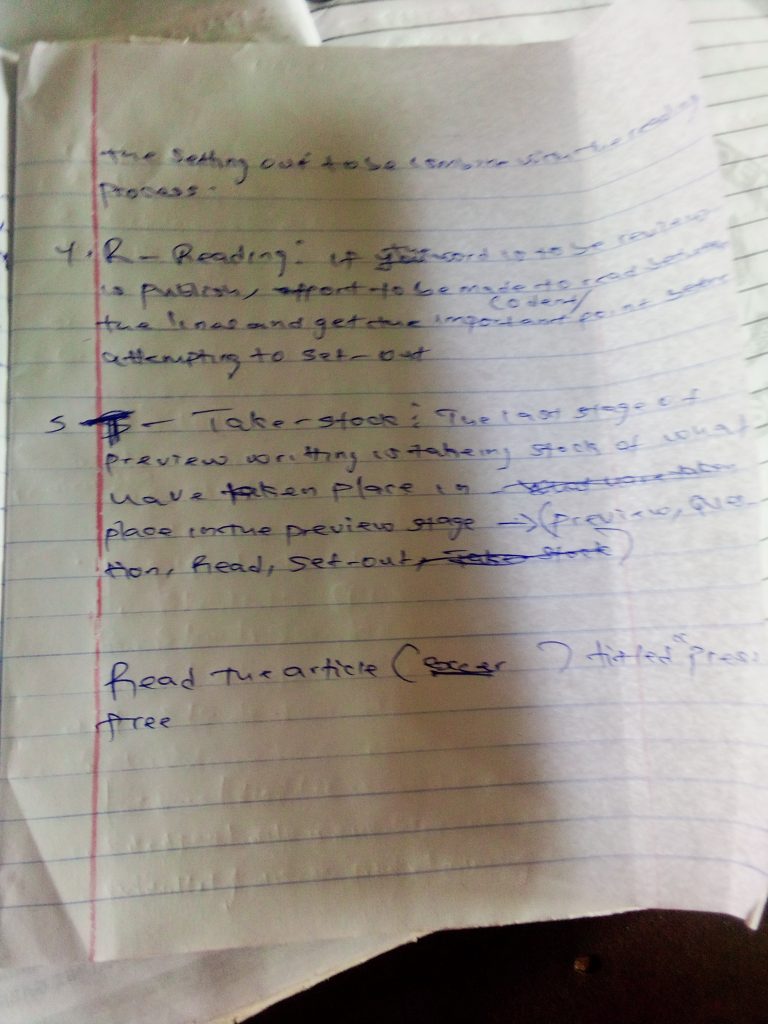 the setting out to be combine with the reading
process.
4. R - Reading: if word is to be review
is publish, effort to be made to read between
(oden)
the lines and get the important point before
attempting to set-out
5 - Take-stock: The last stage of
preview writting is taking stock of what
have taken place in
place in the preview stage → (preview, Ques-
tion, Read, Set-out, Take stock)
Read the article ( ) titled "press
free